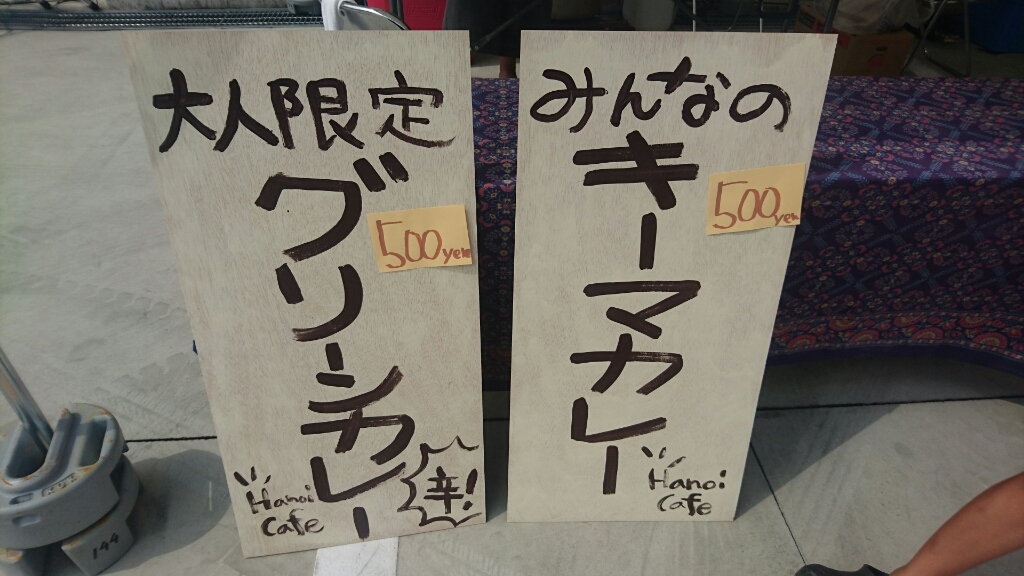 大人限定
グリーンカレー
500yen
辛!
Hanoi
Cafe
みんなの
キーマカレー
500yen
Hanoi
Cafe
144